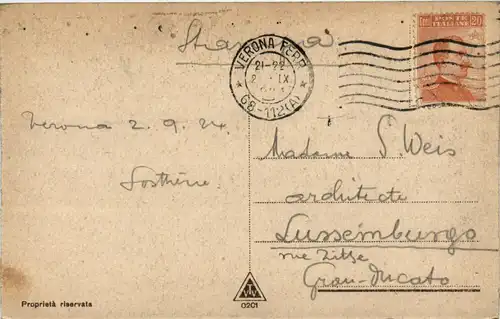 Straniera
VERONA FERR.
21-22
2 IX
68-112(A)
POSTE ITALIANE
20
Verona 2. 9. 24.
Sosthène.
Madame S. Weis
architecte
Lussemburgo
rue Zithe
Gran-Ducato
Proprietà riservata
0201